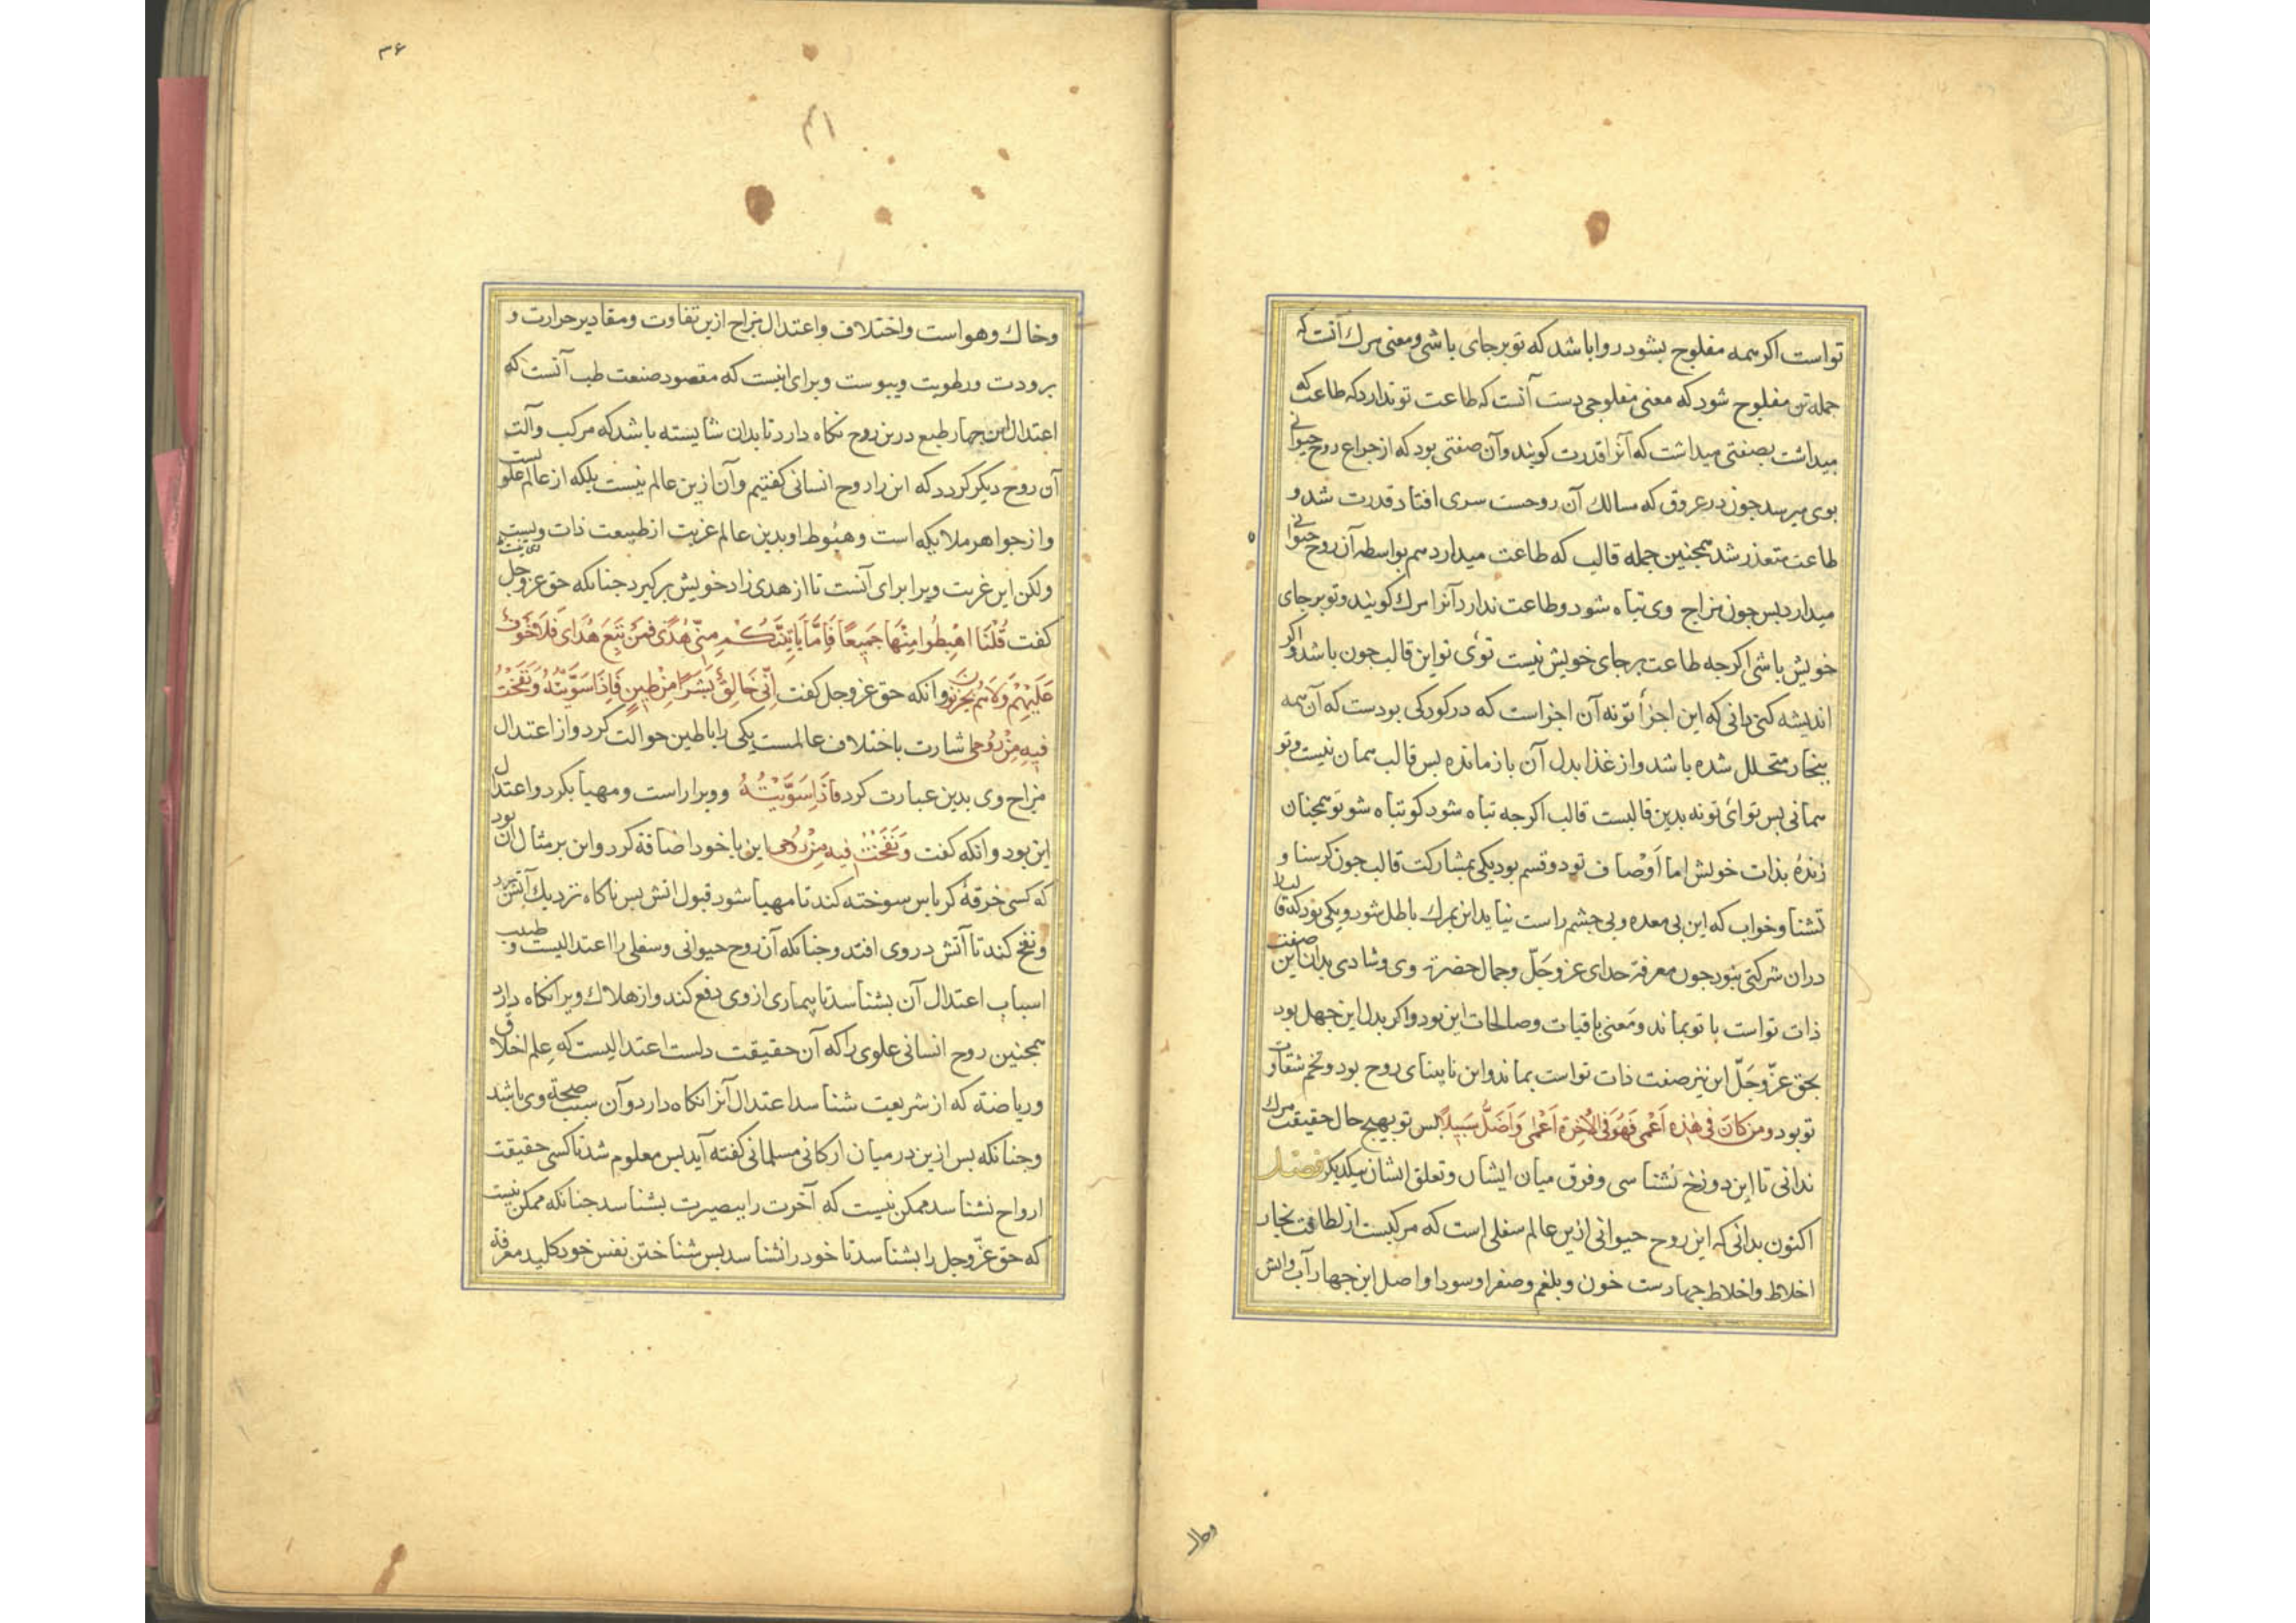 تواست اکر همه مفلوج بشود روا باشد که تو برجای باشی و معنی مرك آنست که
جمله تن مفلوج شود که معنی مفلوجی دست آنست که طاعت تو ندارد که طاعت که
میداشت بصفتی میداشت که آنرا قدرت کویند و آن صفتی بود که از چراع روح حیوانی
بوی میرسد جون در عروق که مسالك آن روحست سری افتاد قدرت شد و
طاعت متعذر شد همجنین جمله قالب که طاعت میدارد هم بواسطه آن روح حیوانی
میدارد بس جون مزاج وی تباه شود و طاعت ندارد آنرا مرك کویند و تو برجای
خویش باشی اکرجه طاعت برجای خویش نیست توئ تو این قالب جون باشد و اکر
اندیشه کنی دانی که این اجزأ تو نه آن اجزاست که در کودکی بودست که آن همه
ببخار متحلل شده باشد و از غذا بدل آن باز مانده بس قالب همان نیست و تو
همانی بس توائ تو نه بدین قالبست قالب اکرجه تباه شود کو تباه شو تو همجنان
زندۀ بذات خویش اما اَوْصاف تو دو قسم بود یکی بمشارکت قالب جون کرسنا و
تشنا و خواب که این بی معده و بی جشم راست نیاید این بمرك باطل شود و یکی بود که قالبرا
دران شرکتی نبود جون معرفة خدای عزوجَلّ و جمال حضرة وی و شادی بدان این صفت
ذات تواست با تو بماند و مَعنی باقیات و صالحات این بود و اکر بدل این جهل بود
بحق عزّوجَلّ این نیز صفت ذات تواست بماند و این نابینای روح بود و تخم شقاوت
تو بود و مَن كَانَ فى هٰذِه اَعْمى فَهُوَ فى الآخِرة اَعْمى وَاَضَلُّ سَبيلاً بس تو بهیج حال حقیقت مرك
ندانی تا این دو زخ نشناسی و فرق میان ایشان و تعلق ایشان بیکدیکر فصل
اکنون بدانی که این روح حیوانی ازین عالم سفلی است که مرکبست از لطافت بخار
اخلاط و اخلاط جهارست خون و بلغم و صفرا و سودا و اصل این جهار آب و آتش
وخاك
۳۶
۳۱
وخاك وهواست واختلاف واعتدال مزاج ازین تفاوت ومقادیر حرارت و
برودت ورطوبت ویبوست وبرای اینست که مقصود صنعت طب آنست که
اعتدال این جهار طبع درین روح نکاه دارد تا بدان شایسته باشد که مرکب وآلت
آن روح دیکر کردد که این را روح انسانی کفتیم وآن ازین عالم نیست بلکه از عالم علویست
واز جواهر ملایکه است وهبوط او بدین عالم غربت از طبیعت ذات وی نیست
ولکن این غربت ویرا برای آنست تا از هدی زاد خویش برکیرد جنانکه حق عزوجل
کفت قُلْنَا اهْبِطُوا مِنْهَا جَمِيعًا فَاِمَّا يَأتِيَنَّكُمْ مِنّى هُدًى فَمَنْ تَبِعَ هُدَاىَ فَلَا خَوْفٌ
عَلَيْهِمْ وَلَاهُمْ يَحْزَنُونَ وانکه حق عزوجل کفت اِنّى خَالِقٌ بَشَرًا مِنْ طينٍ فَاِذَا سَوَّيْتُهُ وَنَفَخْتُ
فيهِ مِنْ رُوحى اشارت باختلاف عالمست یکی را با طین حوالت کرد واز اعتدال
مزاج وی بدین عبارت کرد فَاذَا سَوَّيْتُهُ وویرا راست ومهیا بکرد واعتدال
این بود وانکه کفت وَنَفَخْتُ فيهِ مِنْ رُوحى این با خود اضافة کرد واین بر مثال آن بود
که کسی خرقۀ کرباس سوخته کند تا مهیا شود قبول اتش بس ناکاه نزدیك آتش برد
ونفخ کند تا آتش در وی افتد وجنانکه آن روح حیوانی وسفلی را اعتدالیست وطبیب
اسباب اعتدال آن بشناسد تا بیماری از وی دفع کند واز هلاك ویرا نکاه دارد
همجنین روح انسانی علوی را که آن حقیقت دلست اعتدالیست که عِلم اخلاق
وریاضته که از شریعت شناسد اعتدال آنرا نکاه دارد وآن سبب صحّة وی باشد
وجنانکه بس ازین در میان ارکانی مسلمانی کفته آید بس معلوم شد تا کسی حقیقت
ارواح نشناسد ممکن نیست که آخرت را ببصیرت بشناسد جنانکه ممکن نیست
که حق عزّوجل را بشناسد تا خود را نشناسد بس شناختن نفس خود کلید معرفة